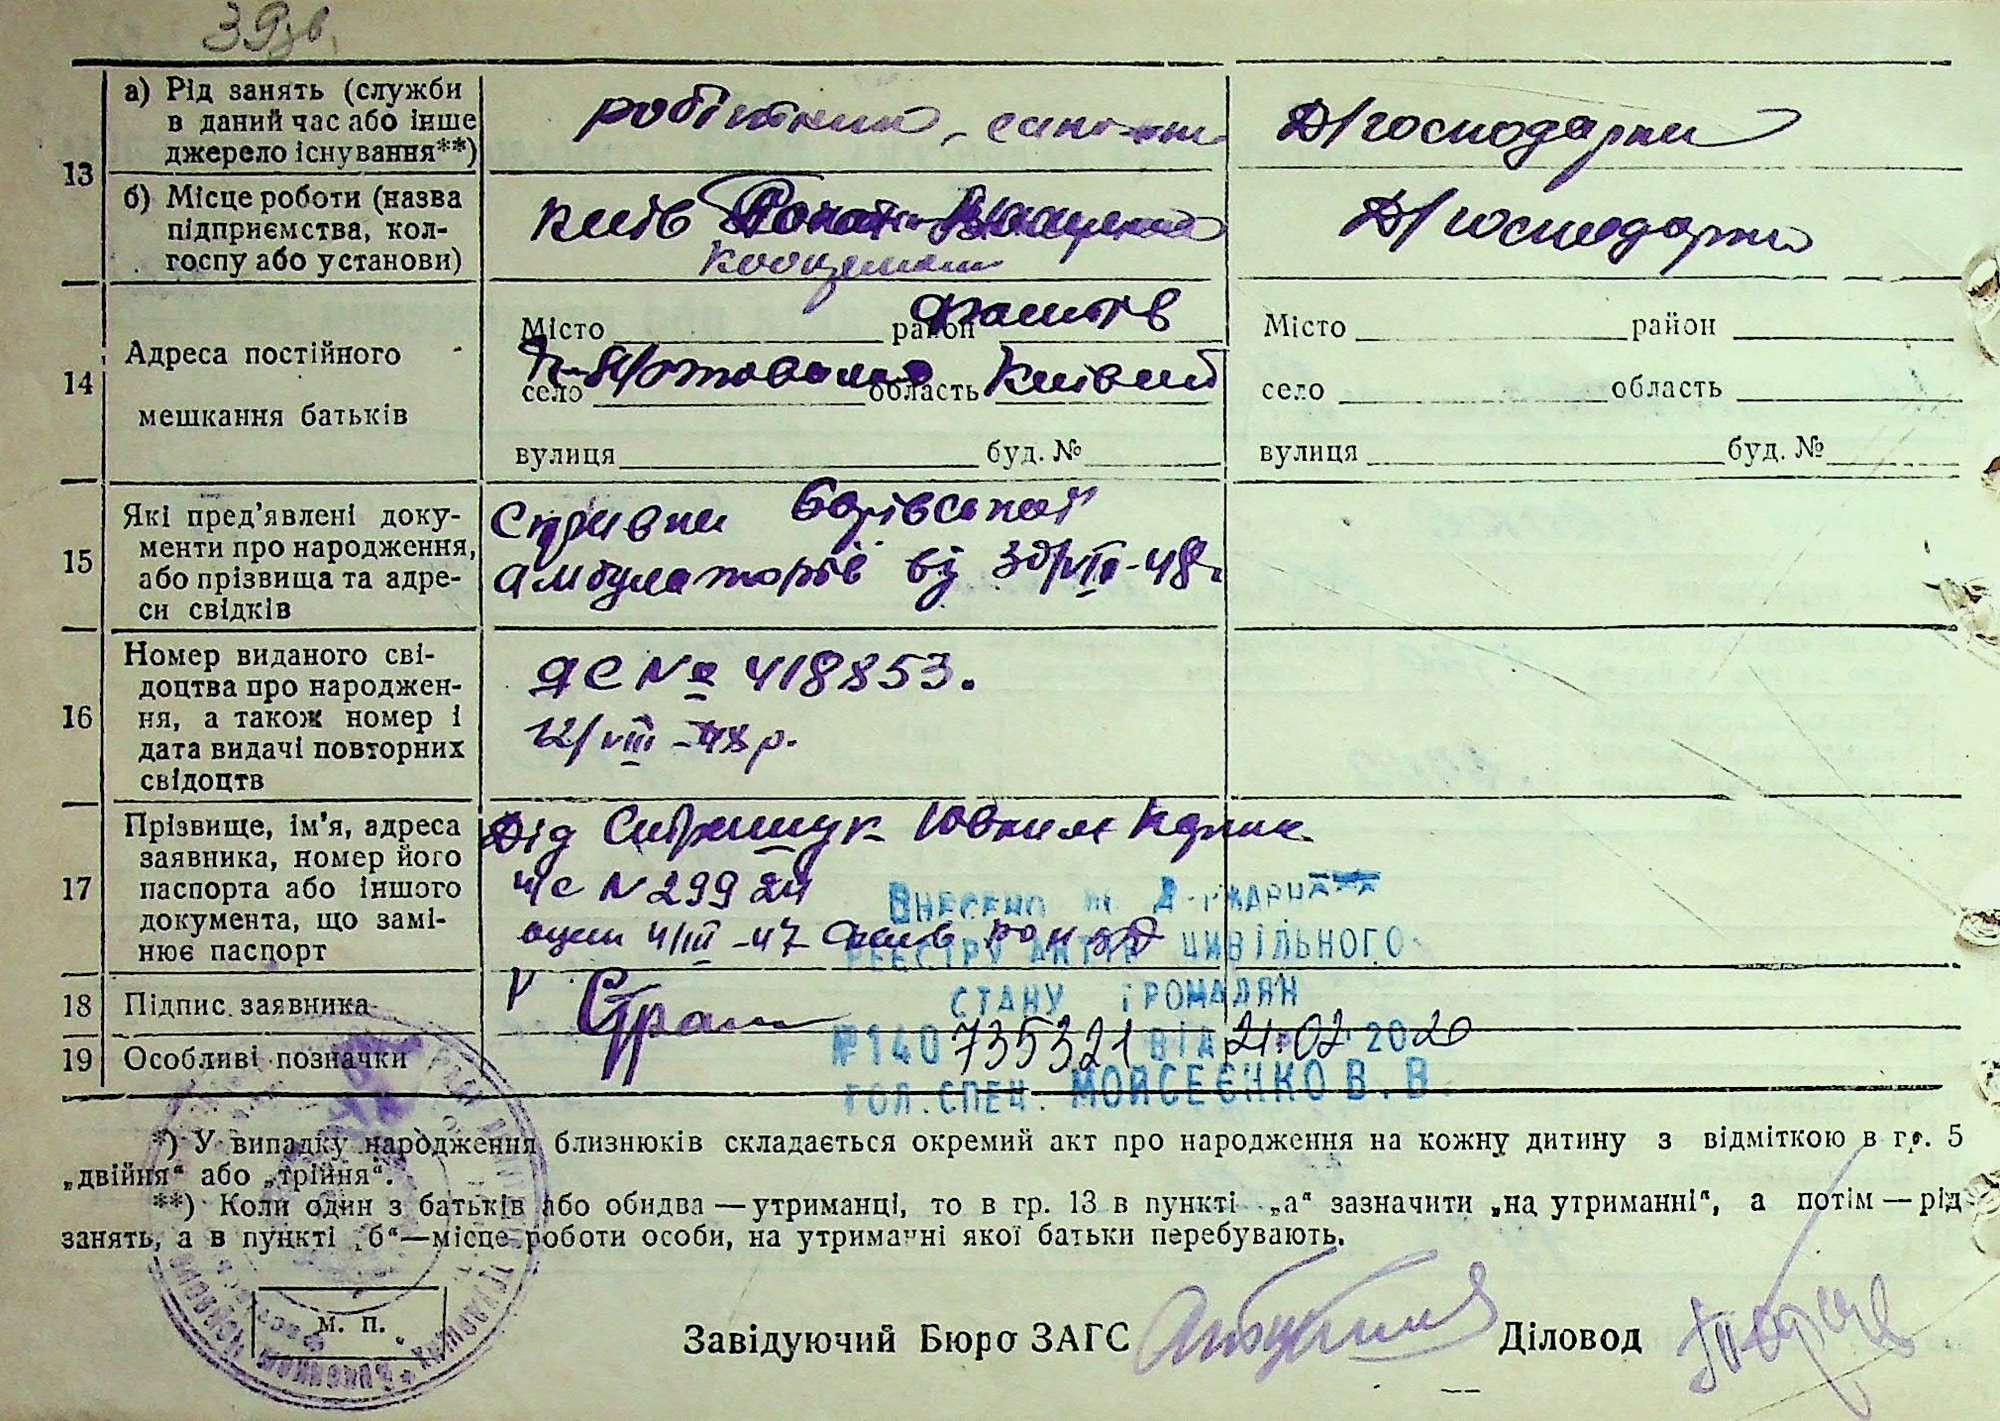 39зв.
а) Рід занять (служби
в даний час або інше
джерело існування**)
робітник
Д/господарки
13
б) Місце роботи (назва
підприємства, кол-
госпу або установи)
Київ
Д/господарки
14
Адреса постійного
мешкання батьків
Місто район Фастів
село область Київської
вулиця буд. №
Місто район
село область
вулиця буд. №
15
Які пред'явлені доку-
менти про народження,
або прізвища та адре-
си свідків
Справки
амбулаторії від VII-48р.
16
Номер виданого сві-
доцтва про народжен-
ня, а також номер і
дата видачі повторних
свідоцтв
ЯС № 418853.
12/VIII-48р.
17
Прізвище, ім'я, адреса
заявника, номер його
паспорта або іншого
документа, що замі-
нює паспорт
Дід Юхим
ЧС N 29924
4/III-47
Внесено до Державного
реєстру актів цивільного
стану громадян
№140 735321 від 21.02.2020
гол.спец. Мойсеєнко В.В.
18
Підпис заявника
19
Особливі позначки
*) У випадку народження близнюків складається окремий акт про народження на кожну дитину з відміткою в гр. 5
„двійня“ або „трійня“.
**) Коли один з батьків або обидва — утриманці, то в гр. 13 в пункті „а“ зазначити „на утриманні“, а потім — рід
занять, а в пункті „б“—місце роботи особи, на утриманні якої батьки перебувають.
м. п.
Завідуючий Бюро ЗАГС
Діловод